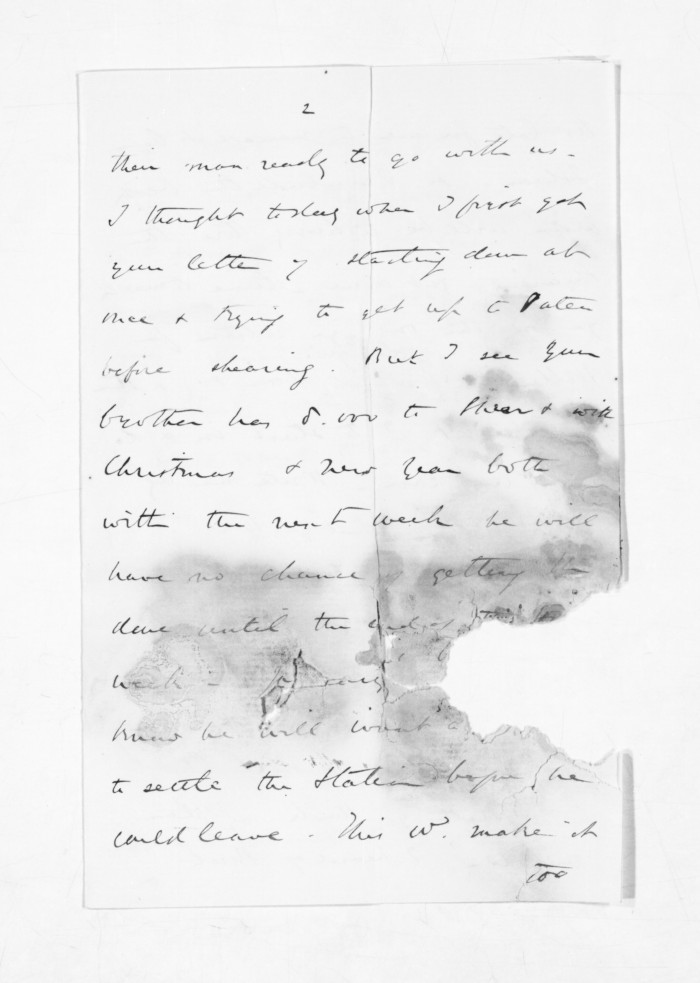 2
their man ready to go with us -
I thought today when I first got
your letter of starting down at
once & trying to get up to Patea
before shearing. But I see your
brother has 8.000 to Shear & with
Christmas & New Year both
within the next week he will
have no chance of getting
done until the end of this
week -
know he will want
to settle the Station before he
could leave. This wd. make it
too